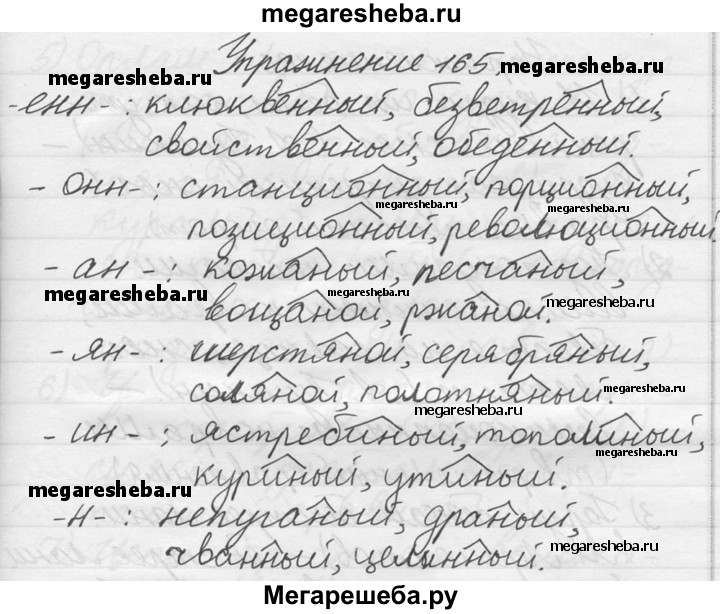 megaresheba.ru
Упражнение 165.
megaresheba.ru
-енн- : клюквенный, безветренный,
megaresheba.ru
megaresheba.ru
свойственный, обеденный.
- онн- : станционный, порционный,
megaresheba.ru
megaresheba.ru
позиционный, революционный.
- ан - : кожаный, песчаный,
megaresheba.ru
megaresheba.ru
вощаной, ржаной.
megaresheba.ru
- ян- : шерстяной, серебряный,
соляной, полотняный.
megaresheba.ru
megaresheba.ru
megaresheba.ru
- ин- : ястребиный, тополиный,
megaresheba.ru
куриный, утиный.
megaresheba.ru
-н- : непуганый, драный,
megaresheba.ru
чванный, целинный.
megaresheba.ru
Мегарешеба.ру